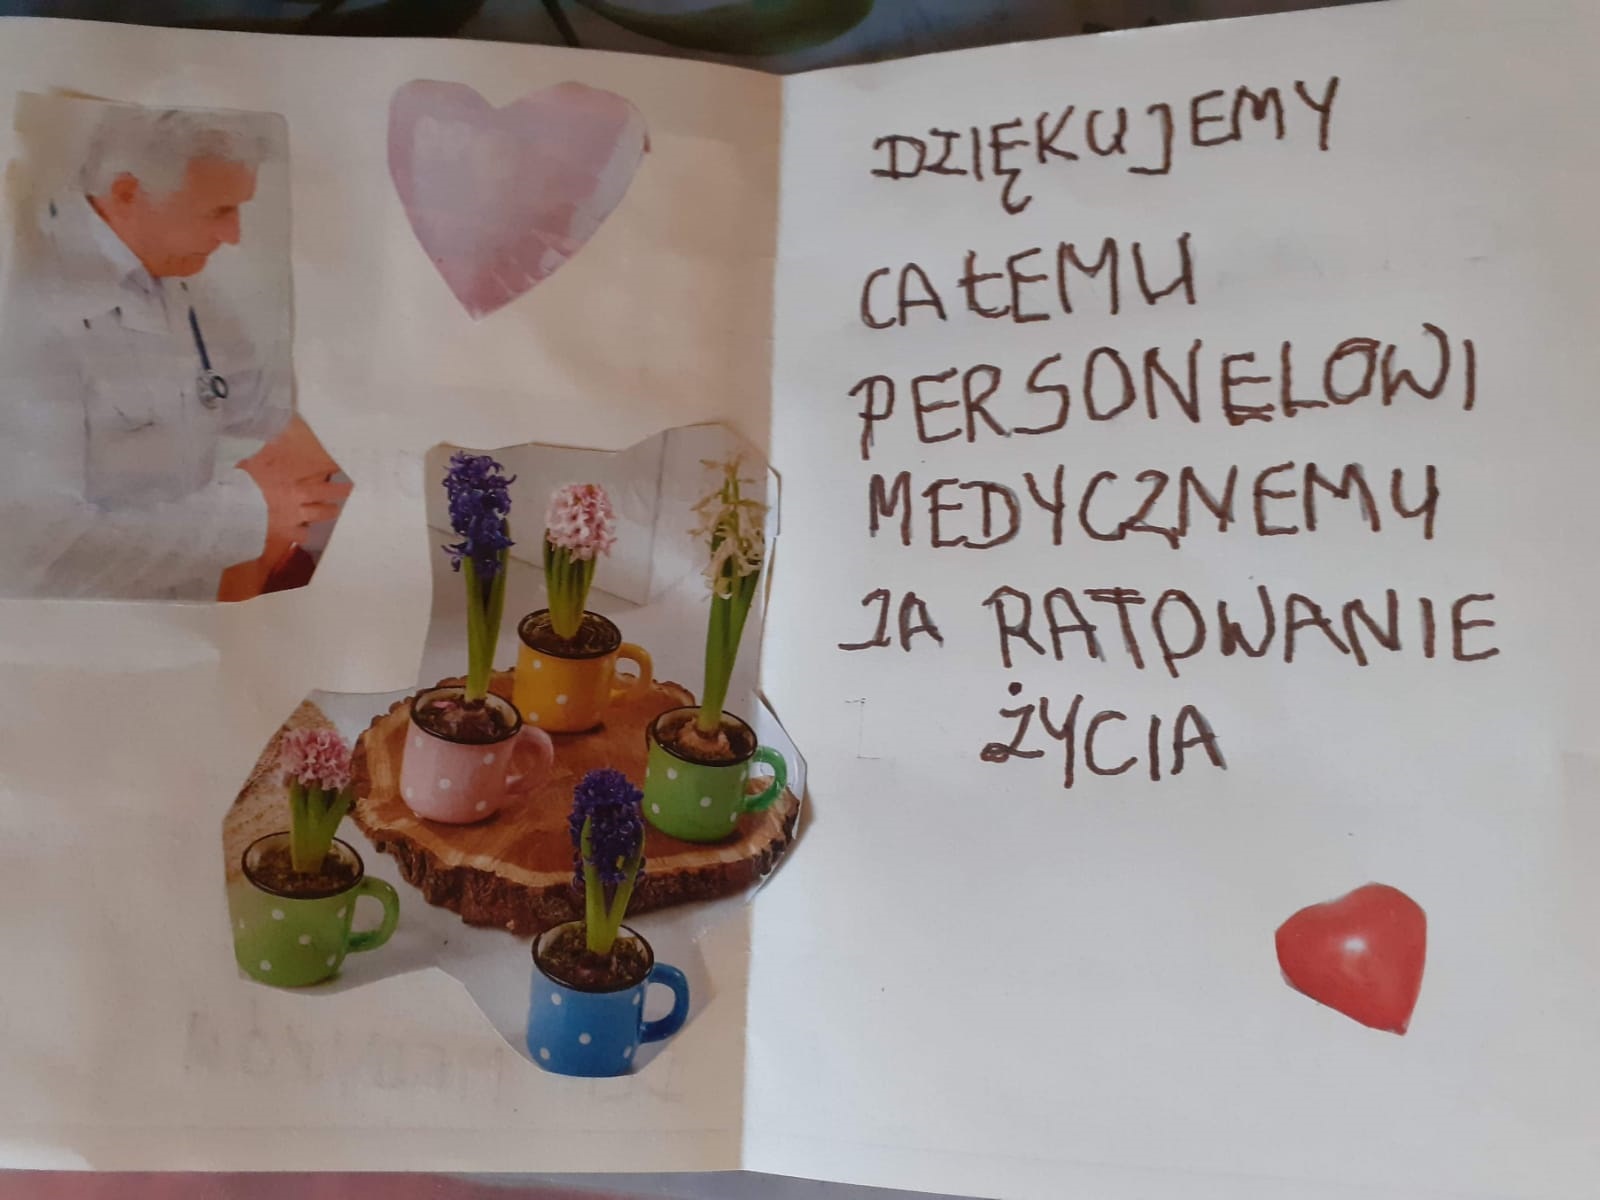 DZIĘKUJEMY
CAŁEMU
PERSONELOWI
MEDYCZNEMU
ZA RATOWANIE
ŻYCIA